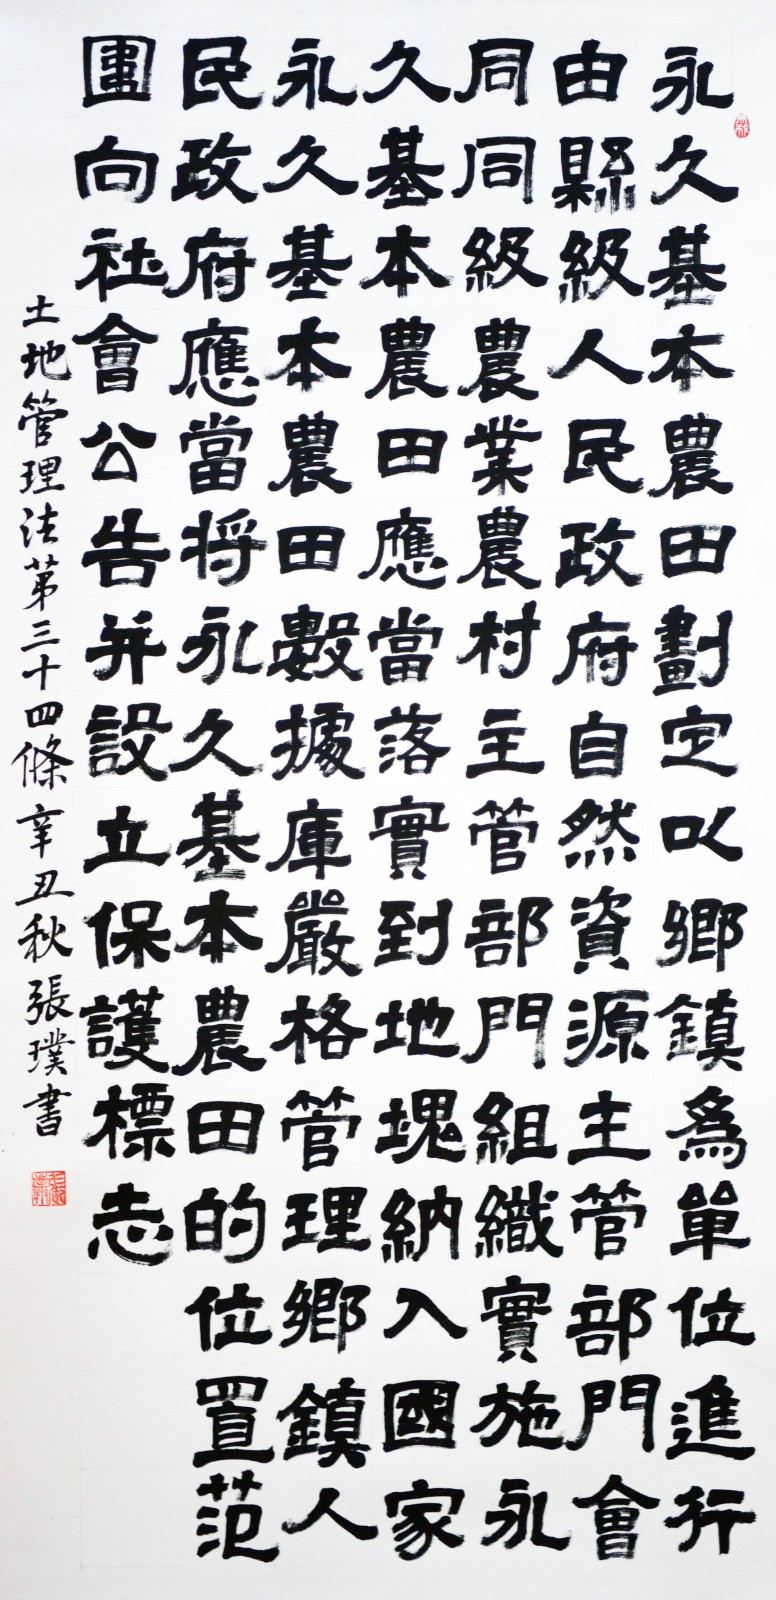 永久基本農田劃定以鄉鎮爲單位進行
由縣級人民政府自然資源主管部門會
同同級農業農村主管部門組織實施永
久基本農田應當落實到地塊納入國家
永久基本農田數據庫嚴格管理鄉鎮人
民政府應當将永久基本農田的位置范
圍向社會公告并設立保護標志
土地管理法第三十四條辛丑秋張璞書